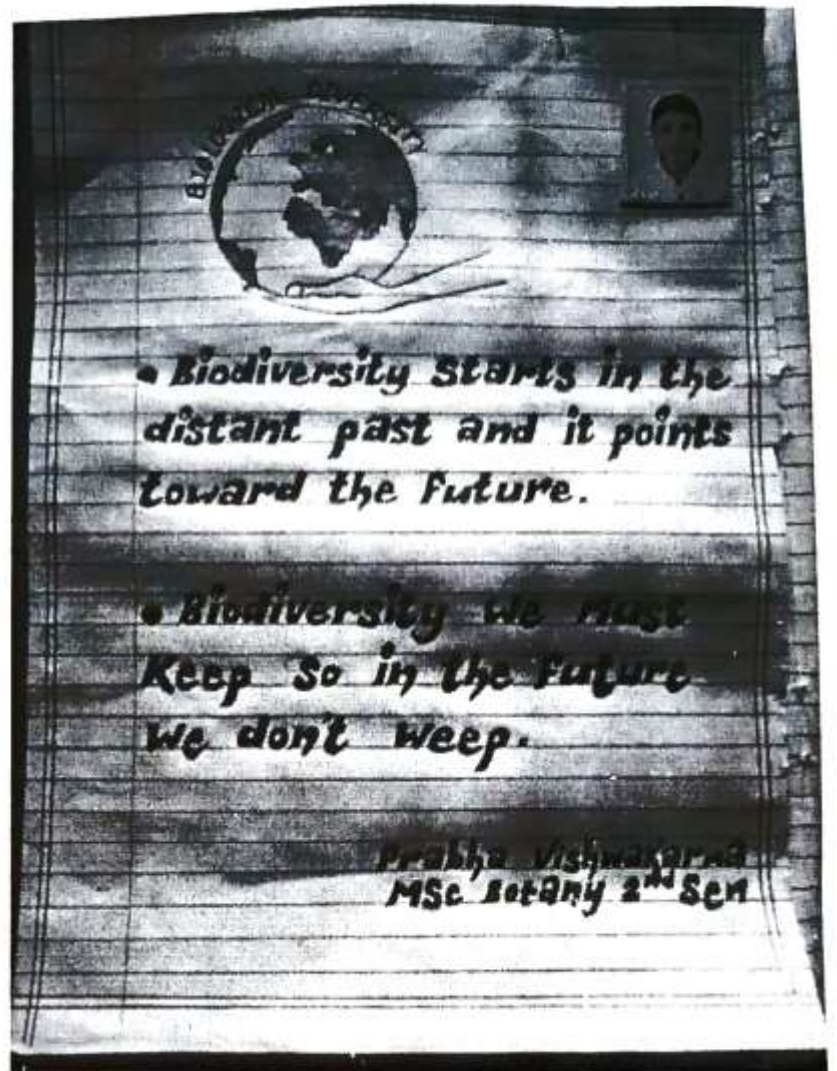 BIOLOGICAL DIVERSITY
• Biodiversity Starts in the
distant past and it points
toward the future.
• Biodiversity we Must
Keep So in the future
we don't weep.
Prabha Vishwakarma
MSc Botany 2nd Sem